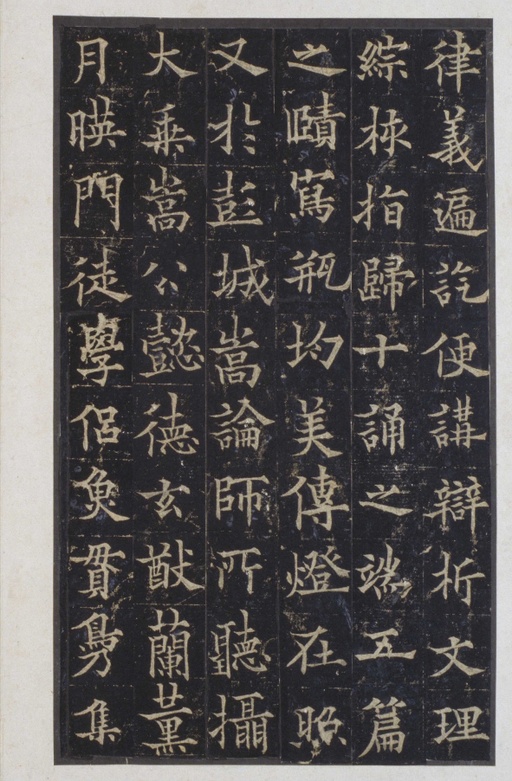 律義遍訖便講辯析文理
綜指歸十誦之端五篇
之賾寫瓶均美傳燈在照
又於彭城嵩論師所聽攝
大乘嵩公懿德玄猷蘭薰
月暎門徒學侶魚貫鳧集